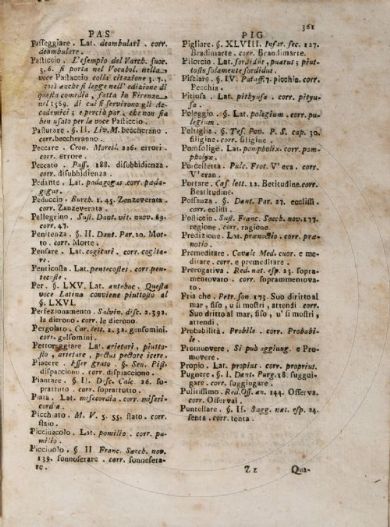 361
PAS
Passeggiare. Lat. deambulari. corr.
deambulare.
Pasticcio. L'esempio del Varch. suoc.
3. 6. si porta nel Vocabol. nella
voce Pasticcio colla citazione 3. 7.
così anche si legge nell' edizione di
questa comedia, fatta in Firenze
nel 1569. di cui si servirono gli Ac-
cademici; e perciò par, che non sia
ben usato in questo luogo.
Pasturare. §. II. Liv. M. beccherano.
corr. beccheranno.
Peccare. Cron. Morell. 226. errori.
corr. errore.
Peccato. Pass. 188. disubbidienza.
corr. disubbidienza.
Pedante. Lat. pedagogus. corr. pæda-
gogus.
Peduccio. Burch. 1. 45. Zenzoverata.
corr. Zanzeverata.
Pellegrino. Sust. Dant. vit. nuov. 69.
corr. 47.
Penitenza. §. II. Dant. Par. 20. Morto.
corr. Morte.
Pensare. Lat. cogitari. corr. cogita-
re.
Penticosta. Lat. pentecostes. corr. pen-
tecoste.
Per. §. LXV. Lat. antehac. Questa
voce Latina conviene piuttosto al
§. LXVI.
Perfezionamento. Salvin. disc. 2. 392.
la dierono. corr. la dierono.
Pergolato. Car. lett. 2. 32. gensomini.
corr. gelsomini.
Pettoreggiare. Lat. arietari, piutto-
sto, arietare, pectus pectore icere.
Piacere. Esser grato. §. Sen. Pist.
dispiacciono. corr. dispiacciono.
Piantare. §. II. Disc. Calc. 26. so-
prattutto. corr. soprattutto.
Pietà. Lat. misecordia. corr. miseri-
cordia.
Picchiato. M. V. 5. 55. stato. corr.
staio.
Picciuolo. Lat. pomilio. corr. pu-
milio.
Picciuolo. §. II. Franc. Sacch. nov.
139. sonnoserare. corr. sonneferare.
PIG
Pigliare. §. XLVIII. Infar. sec. 127.
Bradimarte. corr. Brandimarte.
Pilorcio. Lat. sordidus, putus; piut-
tosto solamente sordidus.
Pisciare. §. IV. Pataff. 7. picchia. corr.
Pecchia.
Pitiusa. Lat. pithyusa. corr. pityu-
sa.
Poleggio. §. Lat. pologium. corr. pu-
legium.
Poltiglia. §. Tes. Pov. P. S. cap. 30.
filigine. corr. filigine.
Pomfolige. Lat. pomphòlix. corr. pom-
pholyx.
Portare. Cas. lett. 12. Betitudine. corr.
Beatitudine.
Possanza. §. Dant. Par. 27. ecclissi.
corr. eclissi.
Posticcio. Sust. Franc. Sacch. nov. 177.
regione. corr. ragione.
Predizione. Lat. prænuctio. corr. præ-
notio.
Premeditare. Caval. Med. cuor. e me-
ditare. corr. e premeditare.
Prerogativa. Red. nat. esp. 23. sopra-
mentovato. corr. soprammentova-
to.
Pria che. Petr. son. 173. Suo dritto al
mar, fiso, u' si mostri attendi corr.
Suo dritto al mar, fiso, u' si mostri,
attendi.
Probabilità. Probile. corr. Probabi-
le.
Promuovere. Si può aggiung. e Pro-
movere.
Propio. Lat. proprius. corr. proprius.
Pugnere. §. I. Dant. Purg. 18. suggui-
gare. corr. suggiogare.
Pulitissimo. Red. Oss. an. 144. Osserva.
corr. Osservai.
Puntellare. §. II. Sagg. nat. esp. 24.
senta. corr. tenta.
Z z
Qua-